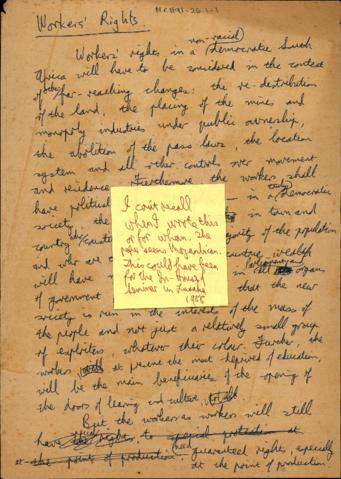 MCH91-26-1-1
Workers' Rights
non-racial
Workers' rights in a Democratic South
Africa will have to be considered in the context
of the far-reaching changes: the re-distribution
of the land, the placing of the mines and
monopoly industries under public ownership,
the abolition of the pass laws, the location
system and all other controls over movement
and residence. Furthermore the workers shall
have political in a truly Democratic
society the in town and
country majority of the population
and who are the country's wealth
will have in all organs
of government that the new
society is run in the interest of the mass of
the people and not just a relatively small group
of exploiters, whatever their colour. Further, the
workers at present the most deprived of education,
will be the main beneficiaries of the opening of
the doors of learning and culture to all
But the workers as workers will still
have rights, to special protection at
at the point of production need guaranteed rights, especially
at the point of production
I can't recall
when I wrote this
or for whom. The
paper seems Mozambican.
This could have been
for the In-House
Seminar in Lusaka
1988